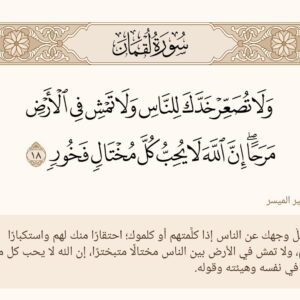 سُورَةُ لُقْمَانَ
وَلَا تُصَعِّرْ خَدَّكَ لِلنَّاسِ وَلَا تَمْشِ فِي ٱلْأَرْضِ
مَرَحًاۖ إِنَّ ٱللَّهَ لَا يُحِبُّ كُلَّ مُخْتَالٍ فَخُورٍ ١٨
الميسر
وجهك عن الناس إذا كلَّمتهم أو كلموك؛ احتقارًا منك لهم واستكبارًا
ولا تمش في الأرض بين الناس مختالا متبخترًا، إن الله لا يحب كل
في نفسه وهيئته وقوله.